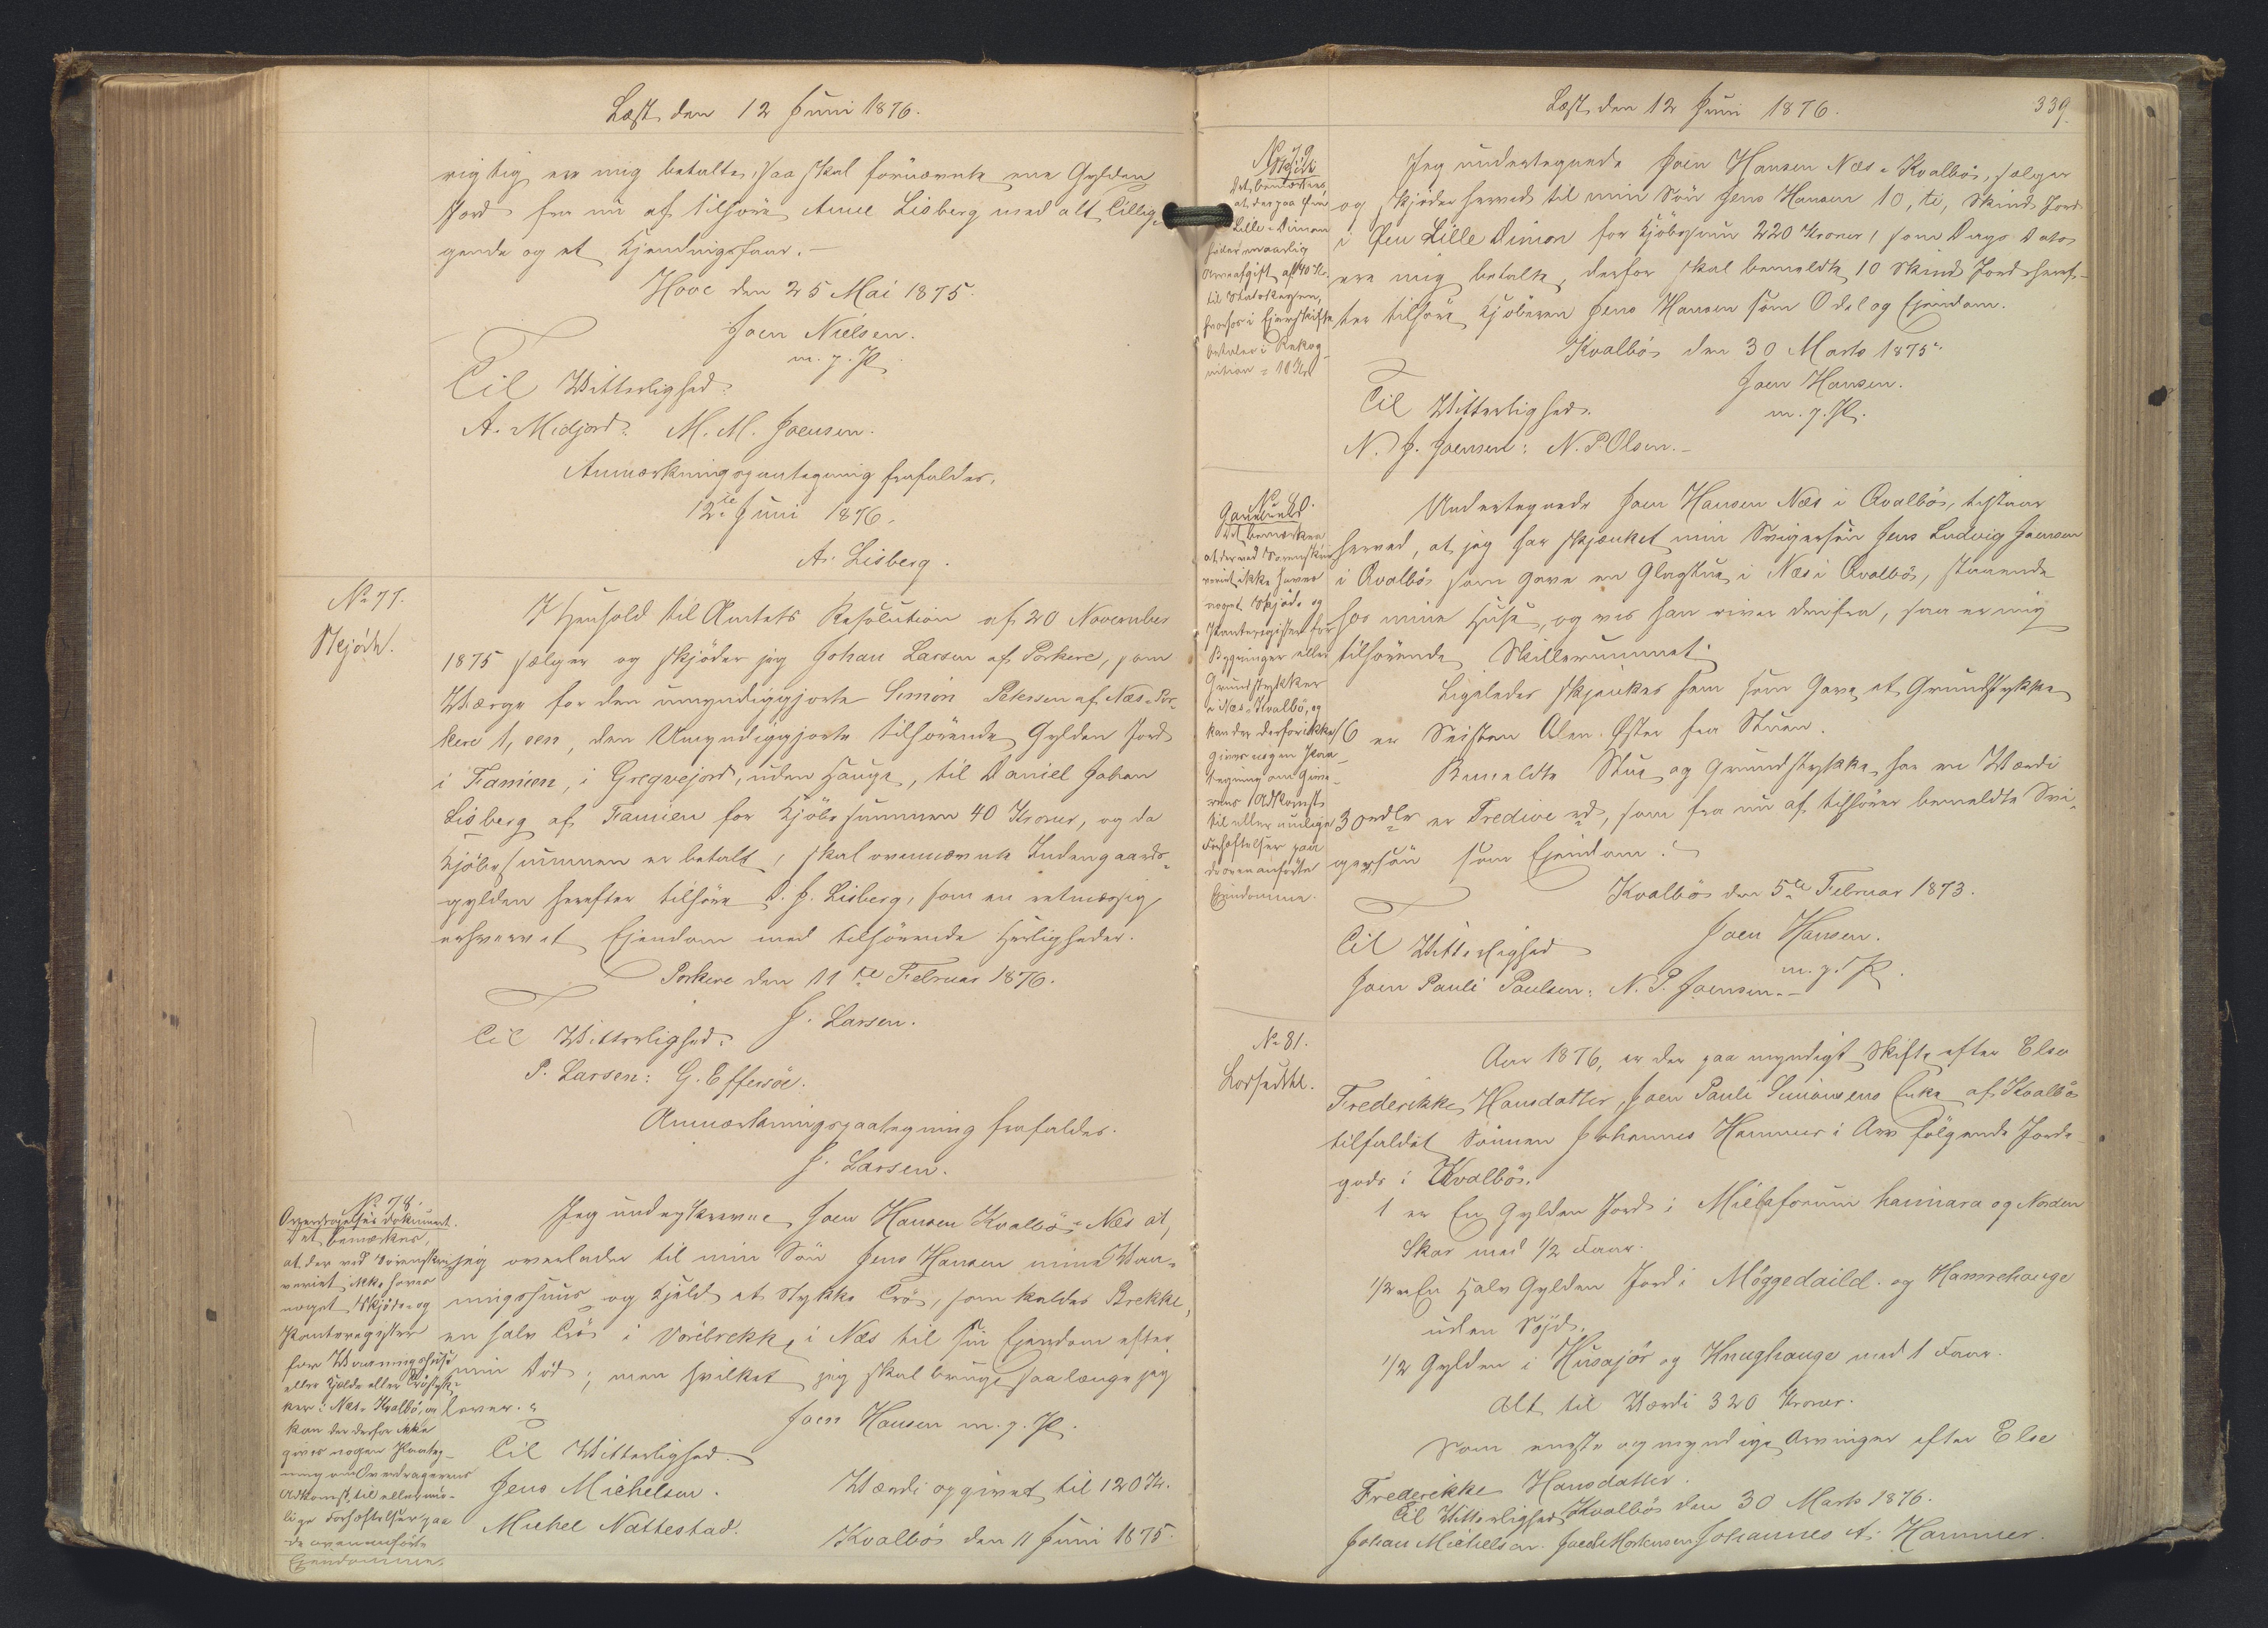 Læst den 12 Juni 1876.
rigtig er mig betalte, saa skal fornævnte ene Gylden
Jord fra nu af tilhøre Anne Lisberg med alt tillig-
gende og et Kjendningsfaar.-
Hove den 25 Mai 1875.
Joen Nielsen.
m. p. P.
Til Witterlighed:
A. Midjord: M. M. Joensen.
Anmærkningspaategning frafaldes.
12te Juni 1876.
A. Lisberg.
No 77.
Skjöde.
I Henhold til Amtets Resolution af 20 November
1875 sælger og skjöder jeg Johan Larsen af Porkere, som
Værge for den umyndiggjorte Simon Petersen af Næs-Por-
kere 1, een, den Umyndiggjorte tilhörende Gylden Jord
i Famien, i Gregvejord, uden Hauge, til Daniel Johan
Lisberg af Famien for Kjöbesummen 40 Kroner, og da
Kjöbesummen er betalt, skal ovennævnte Indengaards-
gylden herefter tilhöre D. J. Lisberg, som en retmæssig
erhvervet Ejendom med tilhörende Herligheder.
Porkere den 11te Februar 1876.
J. Larsen.
Til Witterlighed:
P. Larsen: G. Effersöe.
Anmærkningspaategning frafaldes.
J. Larsen.
No 78.
Overdragelses Dokument.
Det bemærkes,
at der ved Sorenskri-
veriet ikke haves
noget Skjöde- og
Panteregister
for Vaaningshuse
eller Kjelde eller Tröstyk-
ker i Næs-Kvalbö, og
kan der derfor ikke
gives nogen Paateg-
ning om Overdragerens
Adkomst til eller mu-
lige Forhæftelser paa
de ovenanförte
Ejendomme.
Jeg underskrevne Joen Hansen Kvalbö-Næs at,
jeg overlader til min Sön Jens Hansen mine Vaa-
ningshuus og Kjeld et Stykke Trö, som kaldes Brekke,
en halv Trö i Vörebrekke, i Næs til sin Ejendom efter
min Död; men hvilket jeg skal bruge saa længe jeg
lever.
Joen Hansen m. p. P.
Til Witterlighed.
Jens Michelsen.
Michel Nattestad.
Værdi opgivet til 120 Kr.
Kvalbö den 11 Juni 1875.
Læst den 12 Juni 1876.
339.
No 79.
Skjöde
Det bemærkes,
at der paa Öen
Lille-Dimon
hviler en aarlig
Arveafgift af 40 Kr.
til Statskassen,
hvorhos i Ejerskifte
betales i Rekog-
nition = 10 Kr.
Jeg undertegnede Joen Hansen Næs-Kvalbö, sælger
og skjöder herved til min Sön Jens Hansen 10, ti, Skind Jord
i Öen Lille Dimon for Kjöbesum 220 Kroner, som Dags Dato
ere mig betalte, derfor skal bemeldte 10 Skind Jord heref-
ter tilhöre Kjöberen Jens Hansen som Odel og Ejendom.
Kvalbö den 30 Marts 1875.
Joen Hansen.
m. p. P.
Til Witterlighed.
N. J. Joensen: N. P. Olsen.-
No 80.
Gavebrev
Det bemærkes
at der ved Sorenskri-
veriet ikke haves
noget Skjöde og
Panteregister for
Bygninger eller
Grundstykker
i Næs-Kvalbö, og
kan der derfor ikke
gives nogen Paa-
tegning om Give-
rens Adkomst
til eller mulige
Forhæftelser paa
de ovenanförte
Ejendomme.
Undertegnede Joen Hansen Næs i Qvalbö, tilstaar
herved, at jeg har skjænket min Svigersön Jens Ludvig Joensen
i Qvalbö som Gave en Glasstue i Næs i Qvalbö, staaende
hos mine Huse, og vis han river den fra, saa er mig
tilhörende Skillerummet.
Ligeledes skjenkes ham som Gave et Grundstykke
16 er Seisten Alen. Öster fra Stuen.
Bemeldte Stue og Grundstykke har en Værdi
30 rdlr er Tredive rd, som fra nu af tilhörer bemeldte Svi-
gersön som Ejendom.
Kvalbö den 5te Februar 1873.
Joen Hansen.
m. p. P.
Til Witterlighed
Joen Pauli Poulsen: N. P. Joensen.-
No 81.
Lodseddel.
Aar 1876, er der paa myndigt Skifte efter Else
Frederikke Hansdatter, Joen Pauli Simonsens Enke af Kvalbö
tilfaldet Sönnen Johannes Hammer i Arv fölgende Jorde-
gods i Kvalbö.
1 er En Gylden Jord i Miebeforum hamara og Norden
Skar med 1/2 Faar.
1/2 er En Halv Gylden Jord i Möggedaild. og Hamrehauge
uden Söjd.
1/2 Gylden i Husajör og Knughauge med 1 Faar.
Alt til Værdi 320 Kroner.
Som eneste og myndige Arvinger efter Else
Frederikke Hansdatter.
Til Witterlighed Kvalbö den 30 Marts 1876.
Johan Michelsen. Jacob Mortensen Johannes A. Hammer.